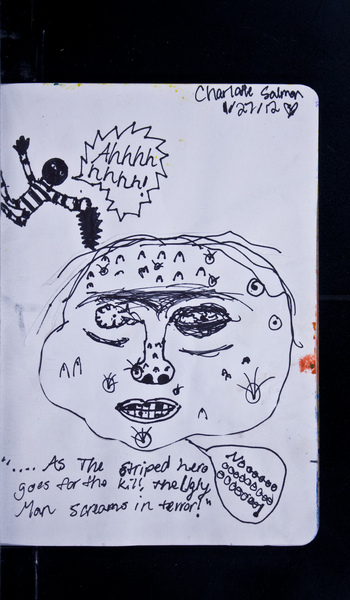 Charlotte Salmon
1/27/12
Ahhhh
hhhh!
".... As The striped hero
goes for the kill, the Ugly
Man screams in terror!"
Nooooooo